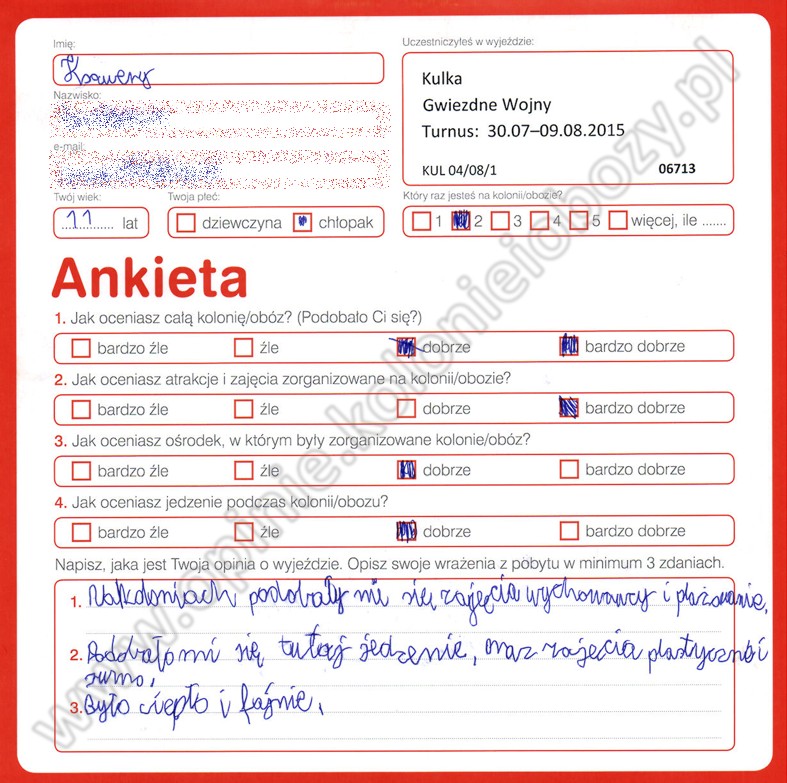 Imię:
Ksawery
Nazwisko:
e-mail:
Twój wiek:
11 lat
Twoja płeć:
dziewczyna chłopak
Uczestniczyłeś w wyjeździe:
Kulka
Gwiezdne Wojny
Turnus: 30.07–09.08.2015
KUL 04/08/1 06713
Który raz jesteś na kolonii/obozie?
1 2 3 4 5 więcej, ile .......
Ankieta
1. Jak oceniasz całą kolonię/obóz? (Podobało Ci się?)
bardzo źle źle dobrze bardzo dobrze
2. Jak oceniasz atrakcje i zajęcia zorganizowane na kolonii/obozie?
bardzo źle źle dobrze bardzo dobrze
3. Jak oceniasz ośrodek, w którym były zorganizowane kolonie/obóz?
bardzo źle źle dobrze bardzo dobrze
4. Jak oceniasz jedzenie podczas kolonii/obozu?
bardzo źle źle dobrze bardzo dobrze
Napisz, jaka jest Twoja opinia o wyjeździe. Opisz swoje wrażenia z pobytu w minimum 3 zdaniach.
1. podobały mi się zajęcia wychowawcy i plażowanie,
2. mi się tutaj jedzenie, oraz zajęcia plastyczne i
sumo,
3. Było ciepło i fajnie.
www.opinie.kolonieiobozy.pl